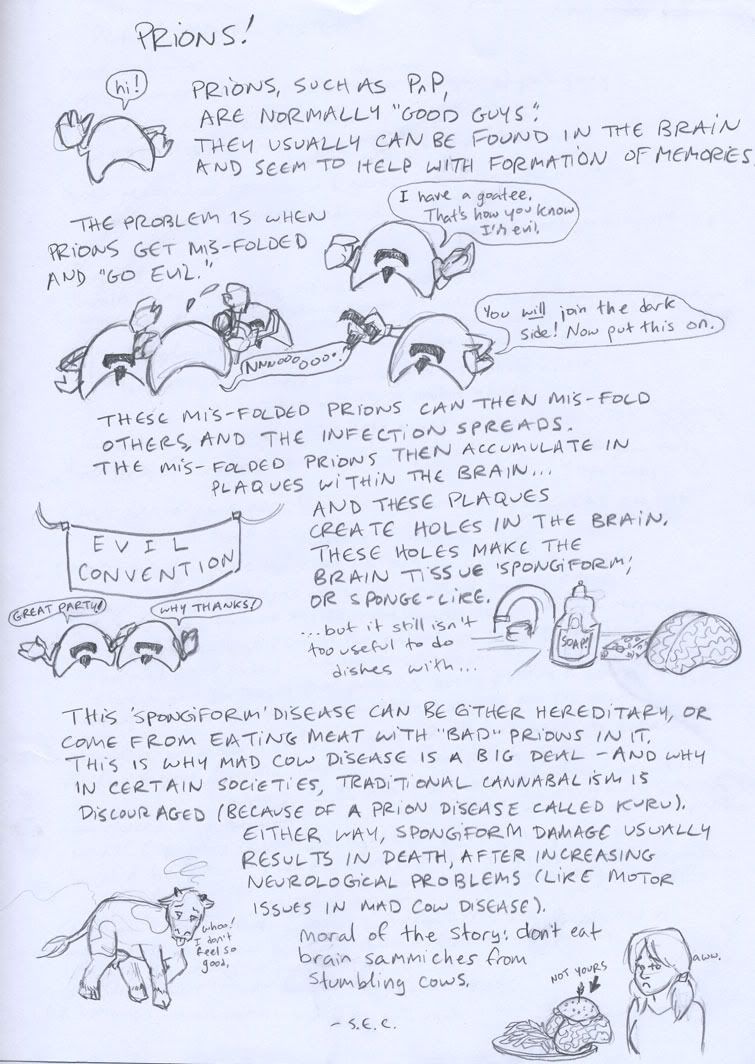 PRIONS!
hi!
PRIONS, SUCH AS PrP,
ARE NORMALLY "GOOD GUYS".
THEY USUALLY CAN BE FOUND IN THE BRAIN
AND SEEM TO HELP WITH FORMATION OF MEMORIES
THE PROBLEM IS WHEN
PRIONS GET MIS-FOLDED
AND "GO EVIL."
I have a goatee.
That's how you know
I'm evil.
NNNOOOOOOO!
You will join the dark
side! Now put this on.
THESE MIS-FOLDED PRIONS CAN THEN MIS-FOLD
OTHERS, AND THE INFECTION SPREADS.
THE MIS-FOLDED PRIONS THEN ACCUMULATE IN
PLAQUES WITHIN THE BRAIN...
AND THESE PLAQUES
CREATE HOLES IN THE BRAIN.
THESE HOLES MAKE THE
BRAIN TISSUE 'SPONGIFORM',
OR SPONGE-LIKE.
EVIL
CONVENTION
GREAT PARTY!
WHY THANKS!
...but it still isn't
too useful to do
dishes with...
SOAP!
THIS 'SPONGIFORM' DISEASE CAN BE EITHER HEREDITARY, OR
COME FROM EATING MEAT WITH "BAD" PRIONS IN IT.
THIS IS WHY MAD COW DISEASE IS A BIG DEAL - AND WHY
IN CERTAIN SOCIETIES, TRADITIONAL CANNABALISM IS
DISCOURAGED (BECAUSE OF A PRION DISEASE CALLED KURU).
EITHER WAY, SPONGIFORM DAMAGE USUALLY
RESULTS IN DEATH, AFTER INCREASING
NEUROLOGICAL PROBLEMS (LIKE MOTOR
ISSUES IN MAD COW DISEASE).
whoo!
I don't
feel so
good.
Moral of the story: don't eat
brain sammiches from
stumbling cows.
NOT YOURS
aww.
- S.E.C.